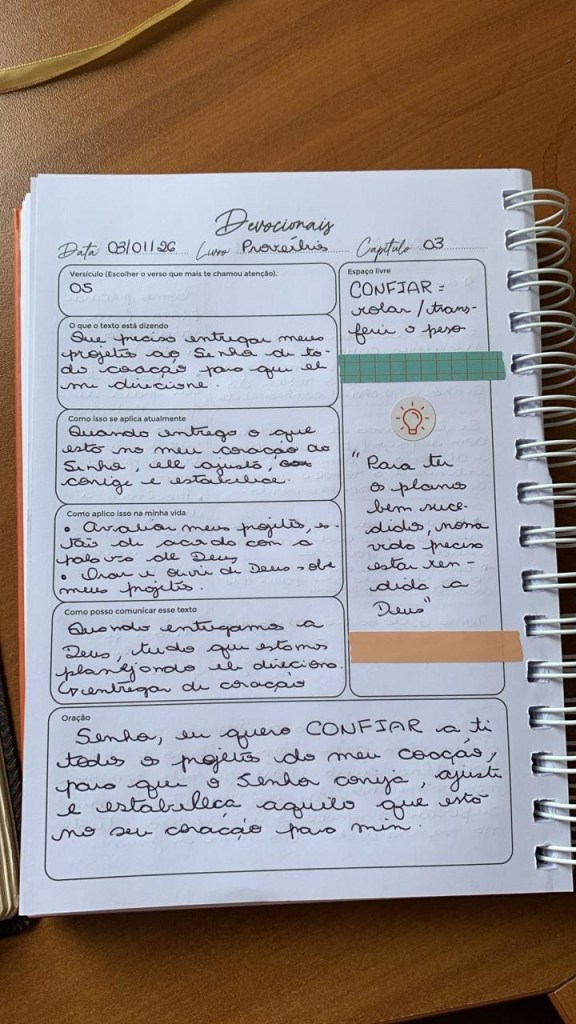 Devocionais
Data 03/01/26 Livro Provérbios Capítulo 03
Versículo (Escolher o verso que mais te chamou atenção).
05
O que o texto está dizendo
Que preciso entregar meus
projetos ao Senhor de to-
do coração para que ele
me direcione.
Como isso se aplica atualmente
Quando entrego o que
está no meu coração ao
Senhor, ele ajusta,
corige e estabelece.
Como aplico isso na minha vida
• Avaliar meus projetos, es-
tão de acordo com a
palavra de Deus
• Orar e ouvir de Deus sobre
meus projetos.
Como posso comunicar esse texto
Quando entregamos a
Deus, tudo que estamos
planejando ele direciona.
↳ entregar de coração
Espaço livre
CONFIAR =
rolar / trans-
ferir o peso
"Para ter
os planos
bem suce-
didos, nossa
vida precisa
estar ren-
dida a
Deus"
Oração
Senhor, eu quero CONFIAR a ti
todos os projetos do meu coação,
para que o Senhor corrija, ajuste
e estabeleça aquilo que está
no seu coração para mim.